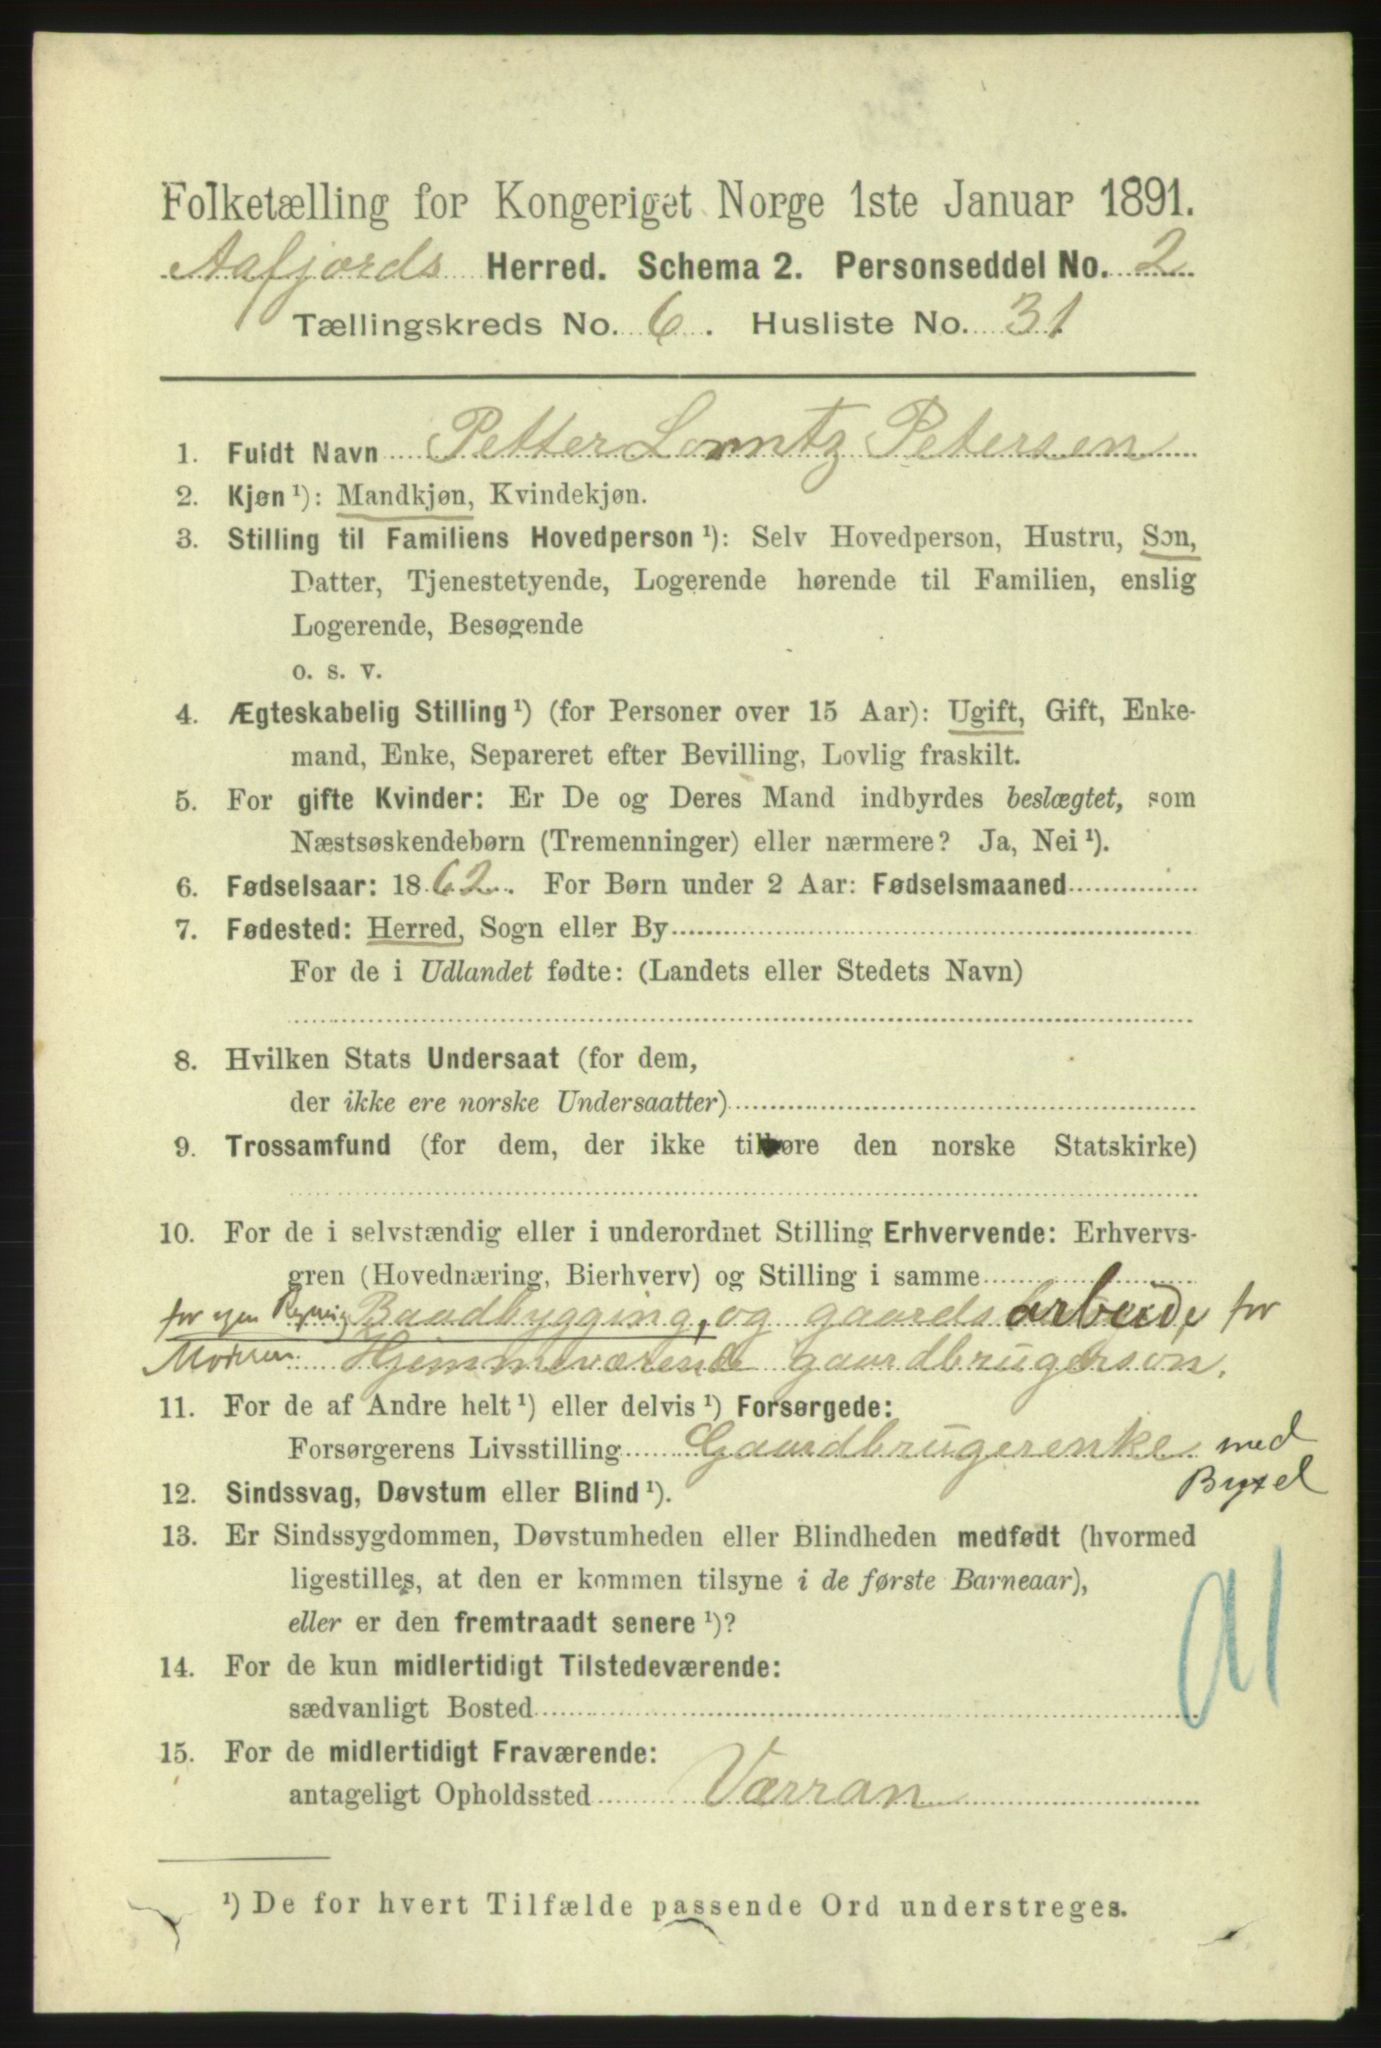 Folketælling for Kongeriget Norge 1ste Januar 1891.
Aafjords Herred. Schema 2. Personseddel No. 2
Tællingskreds No. 6. Husliste No. 31
1. Fuldt Navn Petter Lorntz Petersen
2. Kjøn ¹): Mandkjøn, Kvindekjøn.
3. Stilling til Familiens Hovedperson ¹): Selv Hovedperson, Hustru, Søn,
Datter, Tjenestetyende, Logerende hørende til Familien, enslig
Logerende, Besøgende
o. s. v.
4. Ægteskabelig Stilling ¹) (for Personer over 15 Aar): Ugift, Gift, Enke-
mand, Enke, Separeret efter Bevilling, Lovlig fraskilt.
5. For gifte Kvinder: Er De og Deres Mand indbyrdes beslægtet, som
Næstsøskendebørn (Tremenninger) eller nærmere? Ja, Nei ¹).
6. Fødselsaar: 1862. For Børn under 2 Aar: Fødselsmaaned
7. Fødested: Herred, Sogn eller By
For de i Udlandet fødte: (Landets eller Stedets Navn)
8. Hvilken Stats Undersaat (for dem,
der ikke ere norske Undersaatter)
9. Trossamfund (for dem, der ikke tilhøre den norske Statskirke)
10. For de i selvstændig eller i underordnet Stilling Erhvervende: Erhvervs-
gren (Hovednæring, Bierhverv) og Stilling i samme
for egen Regning Baadbygging, og gaardsarbeide for
Moderen Hjemmeværende gaardbrugerson.
11. For de af Andre helt ¹) eller delvis ¹) Forsørgede:
Forsørgerens Livsstilling Gaardbrugerenke med
Bygsel
12. Sindssvag, Døvstum eller Blind ¹).
13. Er Sindssygdommen, Døvstumheden eller Blindheden medfødt (hvormed
ligestilles, at den er kommen tilsyne i de første Barneaar),
eller er den fremtraadt senere ¹)?
14. For de kun midlertidigt Tilstedeværende:
sædvanligt Bosted
15. For de midlertidigt Fraværende:
antageligt Opholdssted Værran
¹) De for hvert Tilfælde passende Ord understreges.